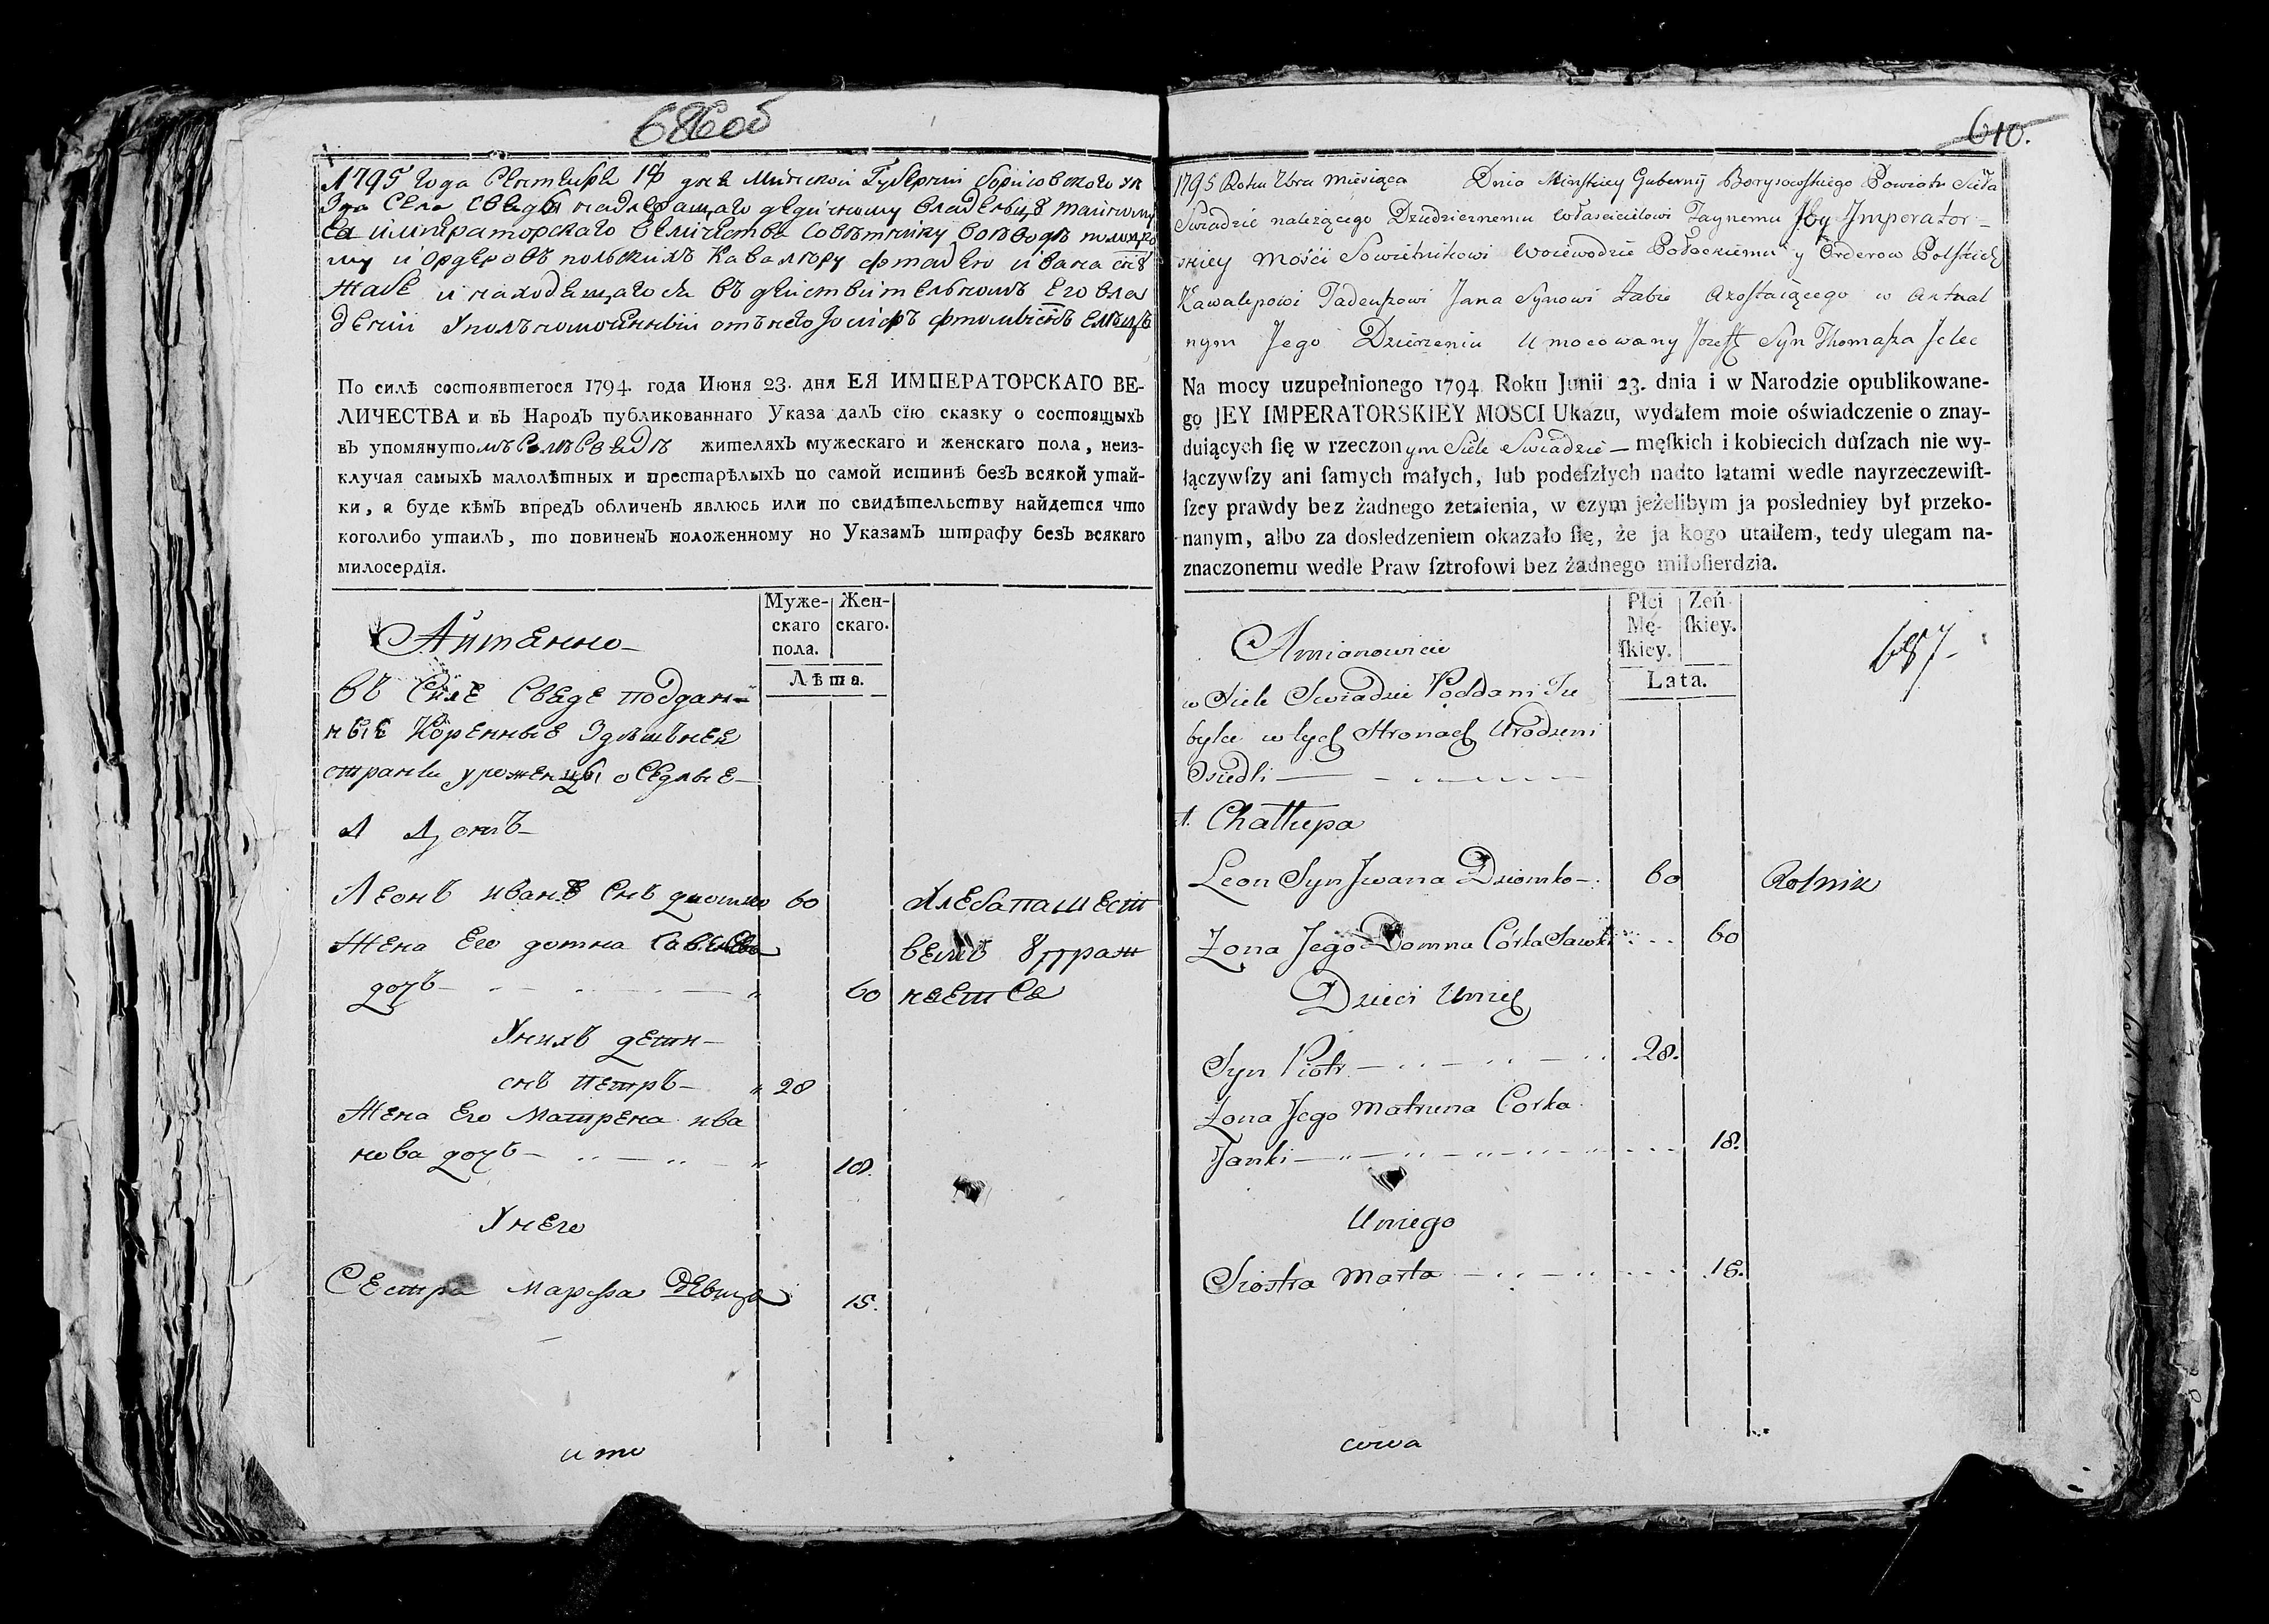 686об
1795 года Сентября 18 дня Минской Губернии Борисовского уе
зда Села Свяды надлежащаго дедичному владельцу тайному
Ея императорскаго величества советнику воеводе полоцко
му и ордеровъ польскихъ Кавалеру фтадею ивана сну
Жабе и находящагося въ действительномъ Его вла
дении Уполномоченный отъ него Іосифъ фтомы снъ
По силѣ состоявшегося 1794. года Июня 23. дня ЕЯ ИМПЕРАТОРСКАГО ВЕ-
ЛИЧЕСТВА и въ Народъ публикованнаго Указа далъ сїю сказку о состоящыхъ
въ упомянутомъ Селѣ Свядѣ жителяхъ мужескаго и женскаго пола, неиз-
ключая самыхъ малолѣтных и престарѣлыхъ по самой истинѣ безъ всякой утай-
ки, а буде кѣмъ впредъ обличенъ явлюсь или по свидѣтельству найдется что
коголибо утаилъ, то повиненъ положенному по Указамъ штрафу безъ всякаго
милосердїя.
Муже-
скаго
пола.
Жен-
скаго.
Лѣта.
Аптянно
въ Селе Сведе поддан-
ные Коренные Здешней
страны уроженцы оседлые
1 Домъ
Леонъ иванъ Снъ дюмко 60 Хлебопашест
Жена Его домна Савина вемъ упраж
дочъ 60 няется
У нихъ дети
снъ Петръ 28
Жена Его Матрена ива
нова дочъ 18.
У него
Сестра Марфа девица 15.
и то
610.
1795 Roku 7bra Miesiąca Dnia Minskiey Gubernij Borysowskiego Powiatu Sieła
Swiadzie należącego Dziedzicznemu Właścicielowi Taynemu Jey Imperator-
skiey Mości Sowietnikowi Woiewodzie Połockiemu y Orderow Polskich
Kawalerowi Tadeuszowi Jana Synowi Żabie Azostaiącego w Aktual
nym Jego Dzierżeniu Umocowany Jozeff Syn Thomasza Jelec
Na mocy uzupełnionego 1794 Roku Junii 23. dnia i w Narodzie opublikowane-
go JEY IMPERATORSKIEY MOSCI Ukazu, wydałem moie oświadczenie o znay-
duiących ſię w rzeczonym Siele Swiadzie męſkich i kobiecich duſzach nie wy-
łączywſzy ani ſamych małych, lub podeſzłych nadto latami wedle nayrzeczewiſt-
ſzey prawdy bez żadnego zetaienia, w czym jeżelibym ja posledniey był przeko-
nanym, albo za dosledzeniem okazało ſię, że ja kogo utaiłem, tedy ulegam na-
znaczonemu wedle Praw ſztrofowi bez żadnego miłoſierdzia.
Płci
Mę-
ſkiey.
Zeń-
ſkiey.
Lata.
687
w Siele Swiadzie Poddani Tu
bylce w tych Stronach Urodzeni
Osiedli
1. Chałłupa
Leon Syn Jwana Dziomko 60 Rolnik
Żona Jego Domna Córka Sawki 60
Dzieci Unich
Syn Piotr 28.
Żona Jego Matruna Corka
Janki 18.
Uniego
Siostra Marta 15.